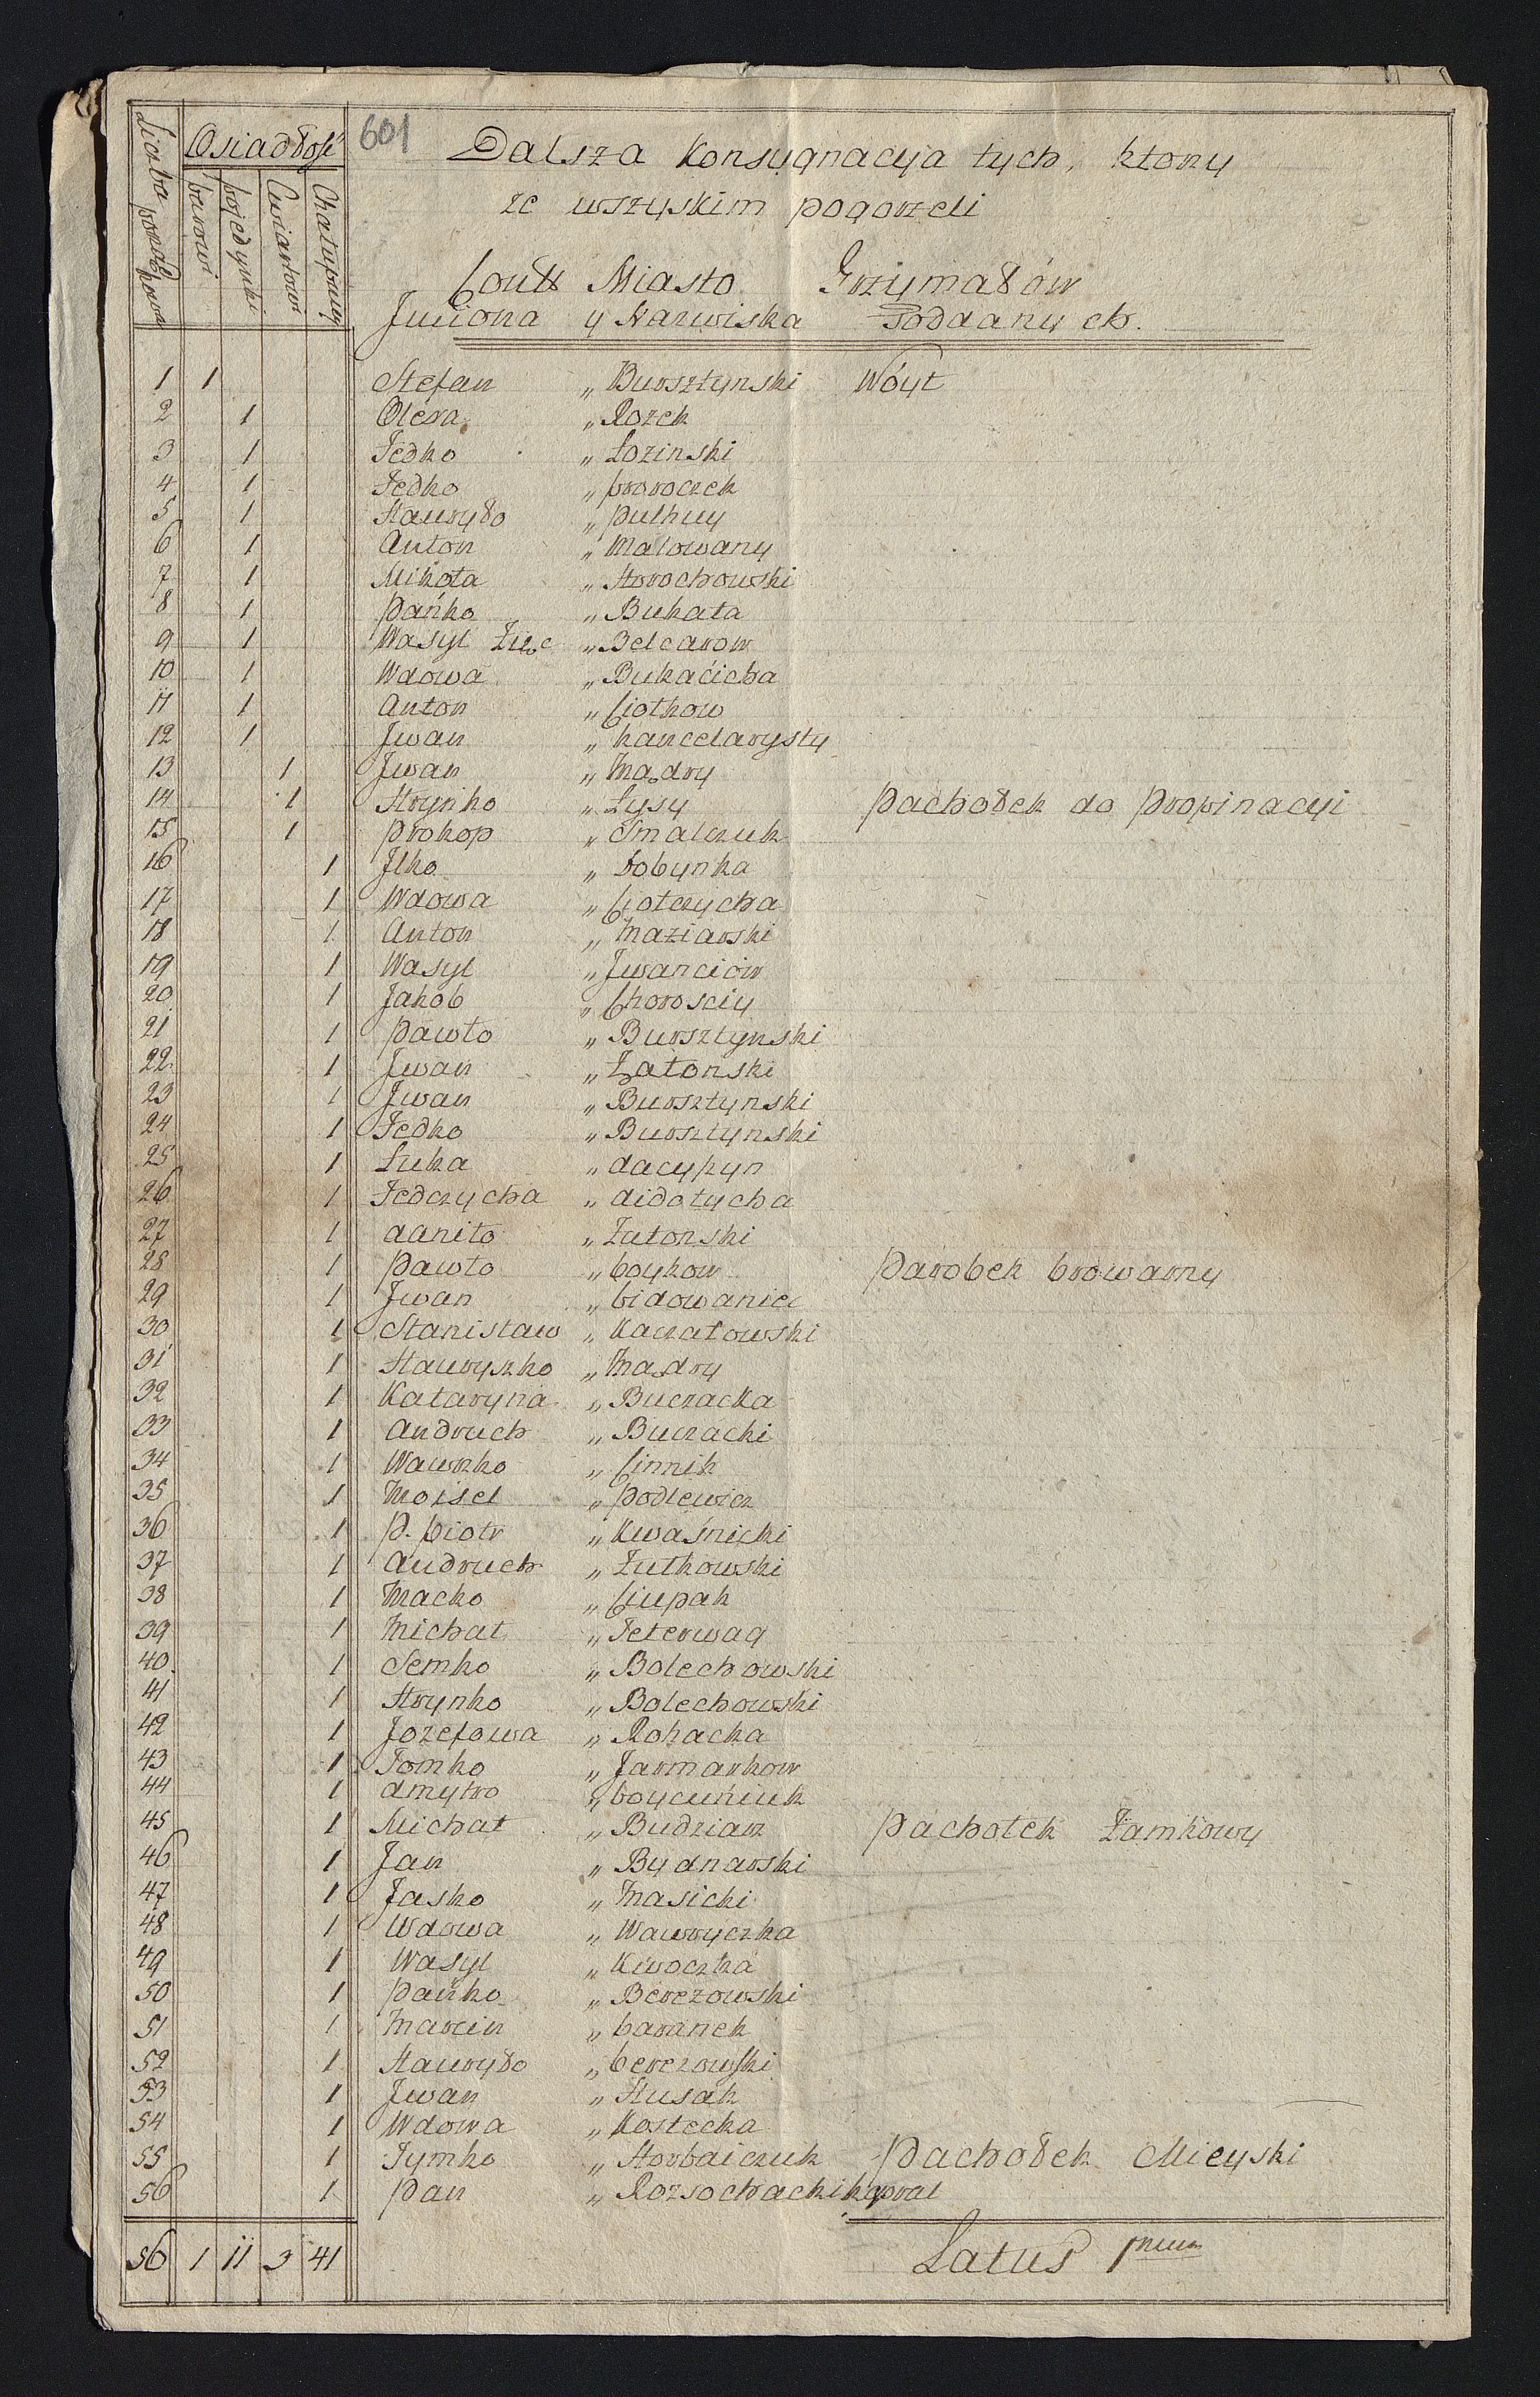 601
Dalsza Konsygnacyja tych, ktory
ze wszyskim pogorzeli
Miasto Grzymałów
Jmiona y Nazwiska Poddanych.
Liczba porządkowa Osiadłość parowi pojedynki Cwiartowi Chałupniy
1 1 Stefan „ Bursztynski Wóyt
2 1 Olexa „ Rozek
3 1 Fedko „ Łozinski
4 1 Fedko „ proroczek
5 1 Hawryło „ pulhuy
6 1 Anton „ Malowany
7 1 Mikoła „ Horochowski
8 1 Pańko „ Bukata
9 1 Wasyl Zięc „ Belearow
10 1 Wdowa „ Bukacicha
11 1 Anton „ Ciotkow
12 1 Jwan „ kancelarysty
13 1 Jwan „ Mądry
14 1 Hrynko „ Łysy pachołek do propinacyi
15 1 Prokop „ Smalczuk
16 1 Jlko „ bobynka
17 1 Wdowa „ Ciotczycha
18 1 Anton „ Maziarski
19 1 Wasyl „ Jwanciów
20 1 Jakob „ Chorosciy
21 1 Pawło „ Bursztynski
22 1 Jwan „ Zatonski
23 1 Jwan „ Bursztynski
24 1 Fedko „ Bursztynski
25 1 Łuka „ dacypyn
26 1 Fedczycha „ didołycha
27 1 daniło „ Zatonski
28 1 Pawło „ boykow Parobek browarny
29 1 Jwan „ bidowaniec
30 1 Stanisław „ Kaczałowski
31 1 Hawryszko „ Mądry
32 1 Kataryna „ Buczacka
33 1 Andruch „ Buczacki
34 1 Wawrzko „ Cinnik
35 1 Moisel „ Podlewicz
36 1 P. Piotr „ Kwaśnicki
37 1 Andruch „ Zutkowski
38 1 Macko „ Ciupak
39 1 Michał „ Feterwag
40 1 Semko „ Bolechowski
41 1 Hrynko „ Bolechowski
42 1 Jozefowa „ Rohacka
43 1 Tomko „ Jarmarkow
44 1 dmytro „ boyciuniuk
45 1 Michał „ Budziarz Pachołek Zamkowy
46 1 Jan „ Bydnarski
47 1 Jasko „ Masicki
48 1 Wdowa „ Wawryczka
49 1 Wasyl „ Kwoczka
50 1 Pańko „ Berezowski
51 1 Marcin „ baranek
52 1 Hawryło „ berezowski
53 1 Jwan „ Husak
54 1 Wdowa „ Kostecka
55 1 Tymko „ Horbaiczuk Pachołek Mieyski
56 1 Pan „ Rozsochacki kapral
56 1 11 3 41 Latus 1mum